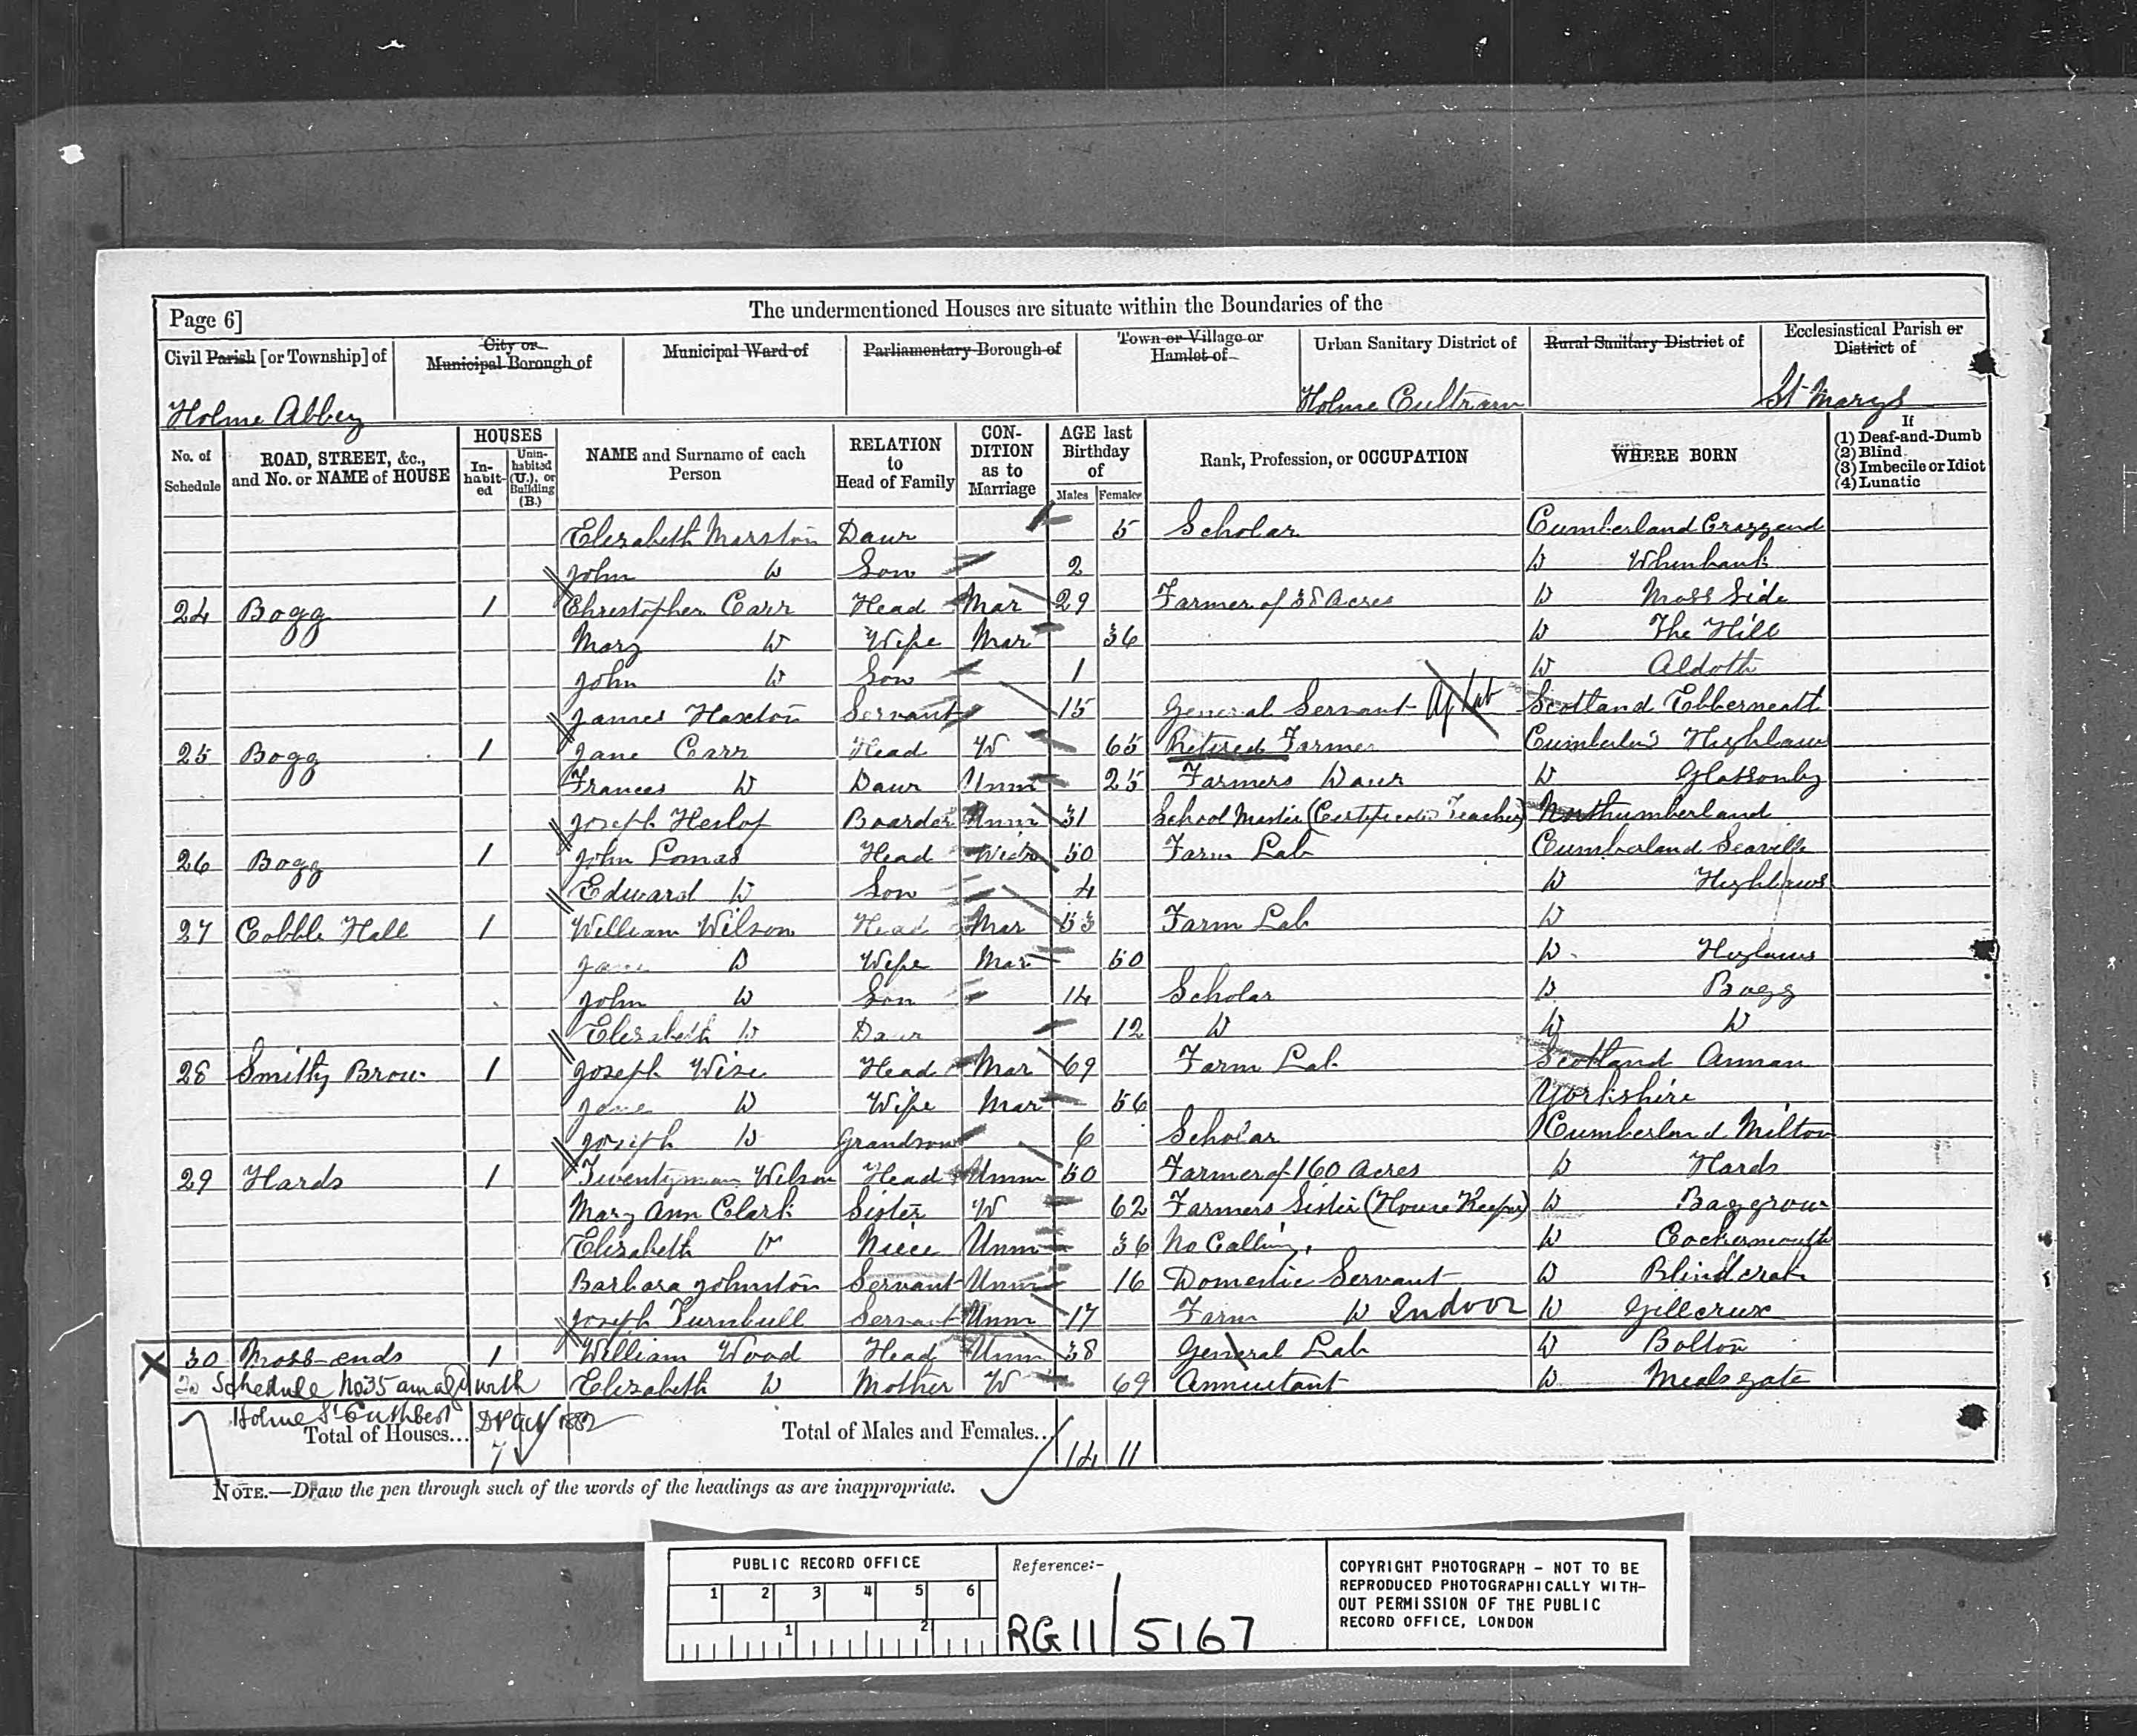 Page 6]
The undermentioned Houses are situate within the Boundaries of the
Civil Parish [or Township] of
City or Municipal Borough of
Municipal Ward of
Parliamentary Borough of
Town or Village or Hamlet of
Urban Sanitary District of
Rural Sanitary District of
Ecclesiastical Parish or District of
Holme Abbey
Holme Cultram
St Marys
No. of Schedule
ROAD, STREET, &c., and No. or NAME of HOUSE
HOUSES
Inhabited
Uninhabited (U.), or Building (B.)
NAME and Surname of each Person
RELATION to Head of Family
CONDITION as to Marriage
AGE last Birthday of
Males Females
Rank, Profession, or OCCUPATION
WHERE BORN
If
(1) Deaf-and-Dumb
(2) Blind
(3) Imbecile or Idiot
(4) Lunatic
Elizabeth Marston Daur 5 Scholar Cumberland
John D Son 2 D Whinbank
24 Bogg 1 Christopher Carr Head Mar 29 Farmer of 38 Acres D Moss Side
Mary D Wife Mar 36 D The Hill
John D Son 1 D Aldoth
James Servant 15 General Servant Ag Lab Scotland
25 Bogg 1 Jane Carr Head W 65 Retired Farmer Highlaws
Frances D Daur Unm 25 Farmers Daur D Glassonby
Joseph Heslop Boarder Unm 31 School Master (Certificated Teacher) Northumberland
26 Bogg 1 John Lomas Head Widr 50 Farm Lab Cumberland Seaville
Edward D Son 4 D Highlaws
27 Cobble Hall 1 William Wilson Head Mar 53 Farm Lab D
Jane D Wife Mar 50 D Higlaws
John D Son 14 Scholar D Bogg
Elizabeth D Daur 12 D D D
28 Smithy Brow 1 Joseph Wise Head Mar 69 Farm Lab Scotland Annan
Jane D Wife Mar 56 Yorkshire
Joseph D Grandson 6 Scholar Cumberland Milton
29 Hards 1 Twentyman Wilson Head Unm 50 Farmer of 160 Acres D Hards
Mary Ann Clark Sister W 62 Farmers Sister (House Keeper) D Baggrow
Elizabeth D Niece Unm 36 No Calling. D Cockermouth
Barbara Johnston Servant Unm 16 Domestic Servant D Blindcrake
Joseph Turnbull Servant Unm 17 Farm D Indoor D Gillcrux
30 Moss-ends 1 William Wood Head Unm 38 General Lab D Bolton
Schedule No 35 amalgd with Elizabeth D Mother W 69 Annuitant D Mealsgate
Holme St Cuthbert 1882
Total of Houses... 7 Total of Males and Females... 14 11
NOTE.—Draw the pen through such of the words of the headings as are inappropriate.
PUBLIC RECORD OFFICE
1 2 3 4 5 6
1 2
Reference:-
RG 11 / 5167
COPYRIGHT PHOTOGRAPH - NOT TO BE
REPRODUCED PHOTOGRAPHICALLY WITH-
OUT PERMISSION OF THE PUBLIC
RECORD OFFICE, LONDON